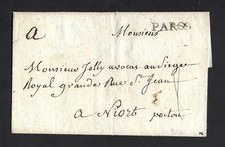 PARS
A Monsieur
Monsieur Jolly avocat au Siege
Royal grande Rue St Jean
A Niort poitou